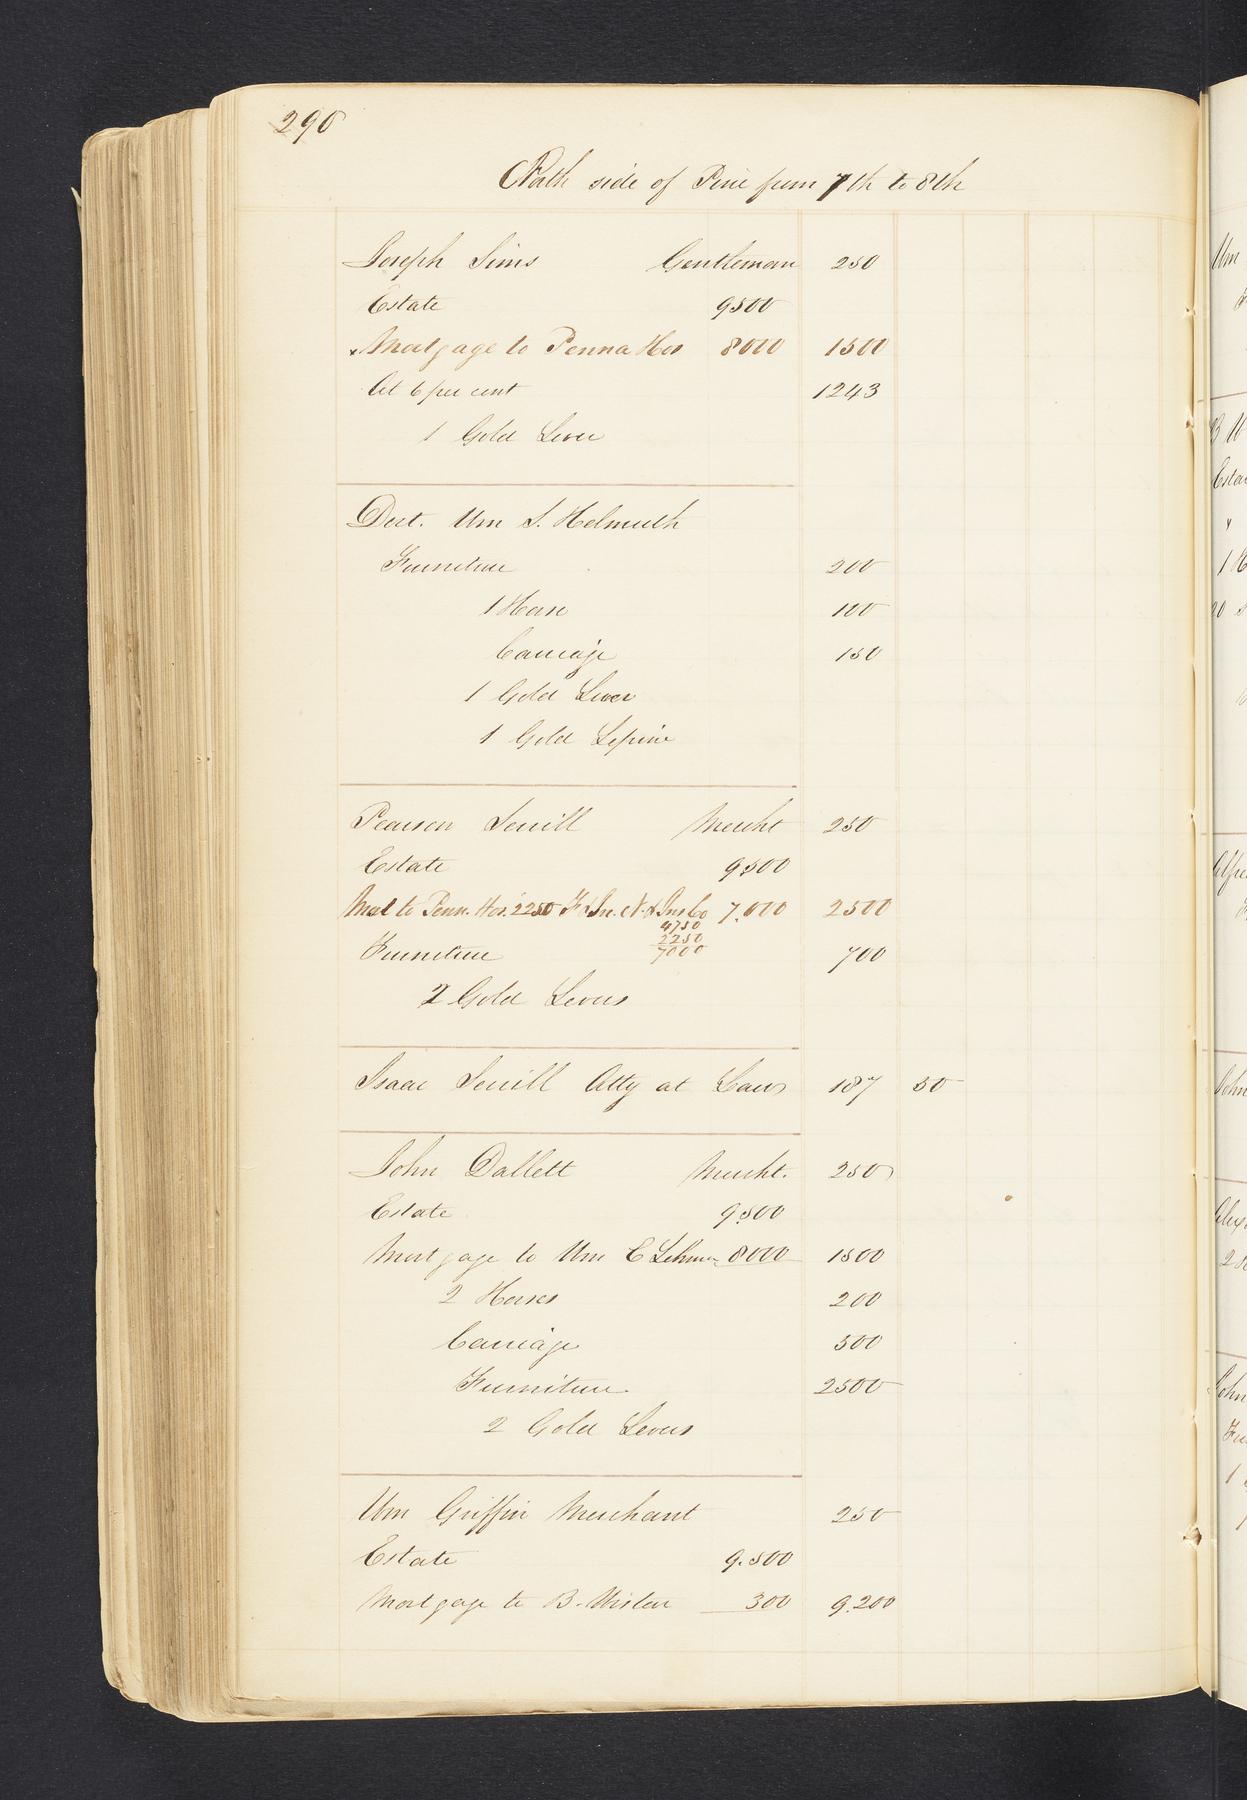 290
North side of Pine from 7th to 8th
Joseph Sims Gentleman 250
Estate 9500
x Mortgage to Penna Hos 8000 1500
At 6 per cent 1243
1 Gold Lever
Doct. Wm S. Helmuth
Furniture 200
1 Horse 100
Carriage 150
1 Gold Lever
1 Gold Lepine
Pearson Serrill Mercht 250
Estate 9500
Mort to Penn. Hos. 2250 F & In. N. & Ins Co 7.000 2500
4750
2250
7000
Furniture 700
2 Gold Levers
Isaac Serrill Atty at Law 187 50
John Dallett Mercht. 250
Estate 9.500
Mortgage to Wm C Lehman 8000 1500
2 Horses 200
Carriage 500
Furniture 2500
2 Gold Levers
Wm Griffin Merchant 250
Estate 9.500
Mortgage to B. Wistar 300 9.200
Wm
Esta
1 H
20
Alfre
John
Alex
John
Fu
1